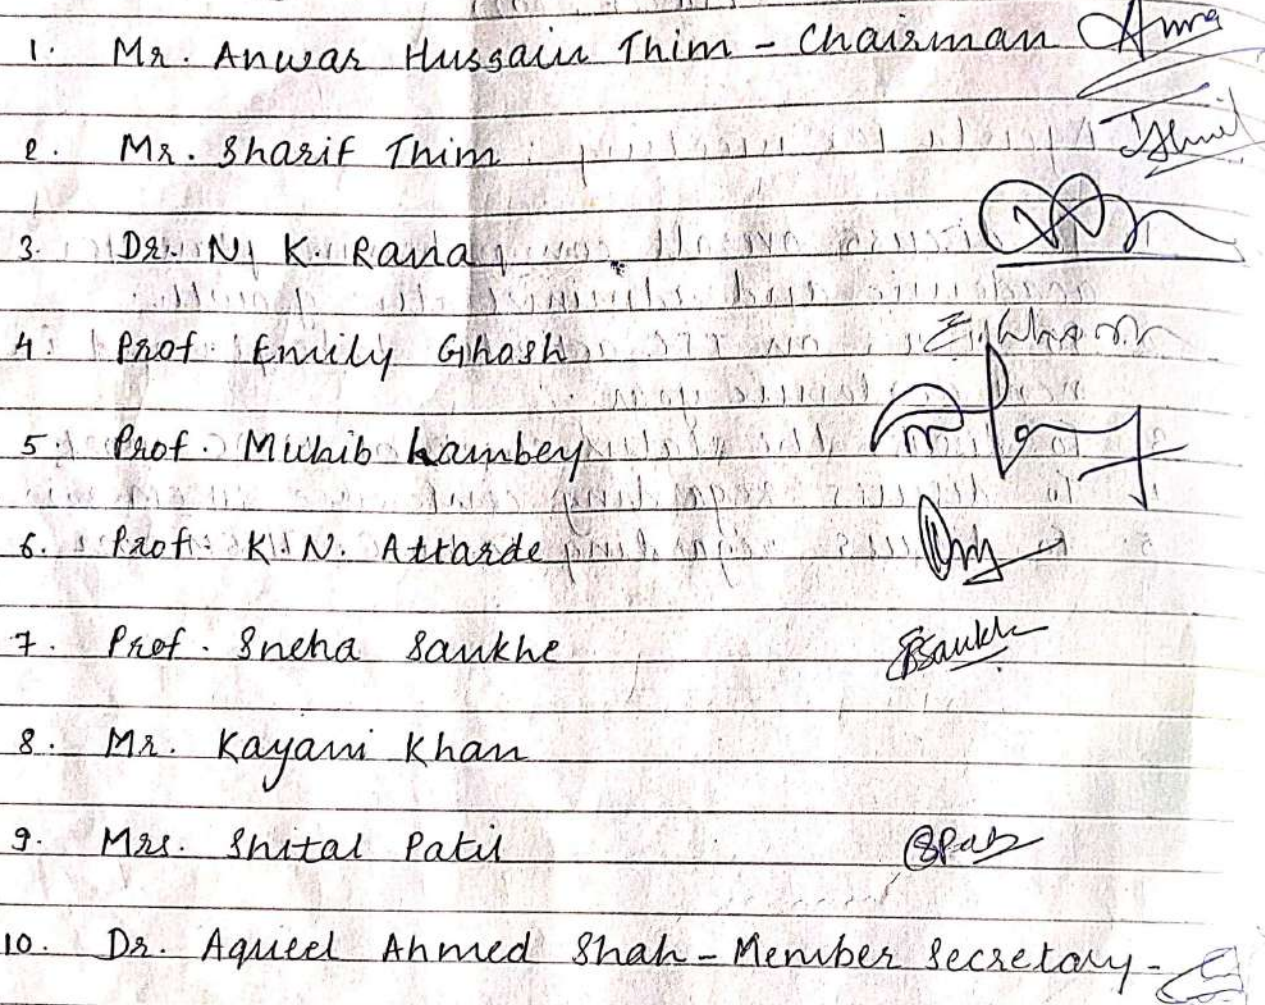 1. Mr. Anwar Hussain Thim - Chairman
2. Mr. Sharif Thim
3. Dr. N. K. Rana
4. Prof. Emily Ghosh
5. Prof. Muhib Lambey
6. Prof. K. N. Attarde
7. Prof. Sneha Saukhe SSaukhe
8. Mr. Kayani Khan
9. Mrs. Shital Patil
10. Dr. Aqueel Ahmed Shah - Member Secretary -